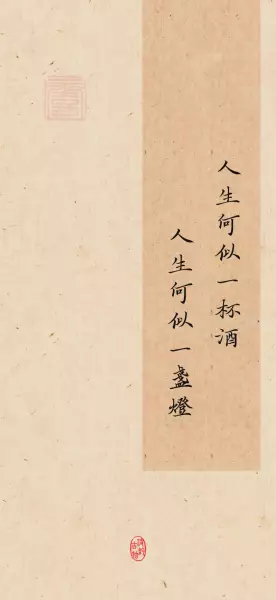 人生何似一杯酒
人生何似一盏燈